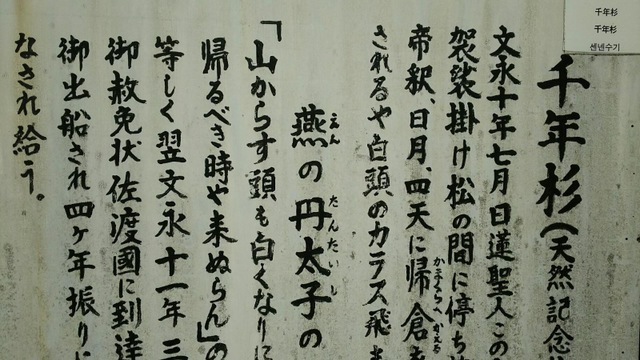 千年杉
千年杉
센넨수기
千年杉（天然記念
文永十年七月日蓮聖人この
袈裟掛け松の間に停ち
帝釈、日月、四天に帰倉
かまくらへかえる
されるや白頭のカラス飛
燕の丹太子の
えん たんたいし
「山からす頭も白くなりに
帰るべき時や来ぬらん」の
等しく翌文永十一年三
御赦免状佐渡國に到達
御出船され四ヶ年振りに
なされ給う。